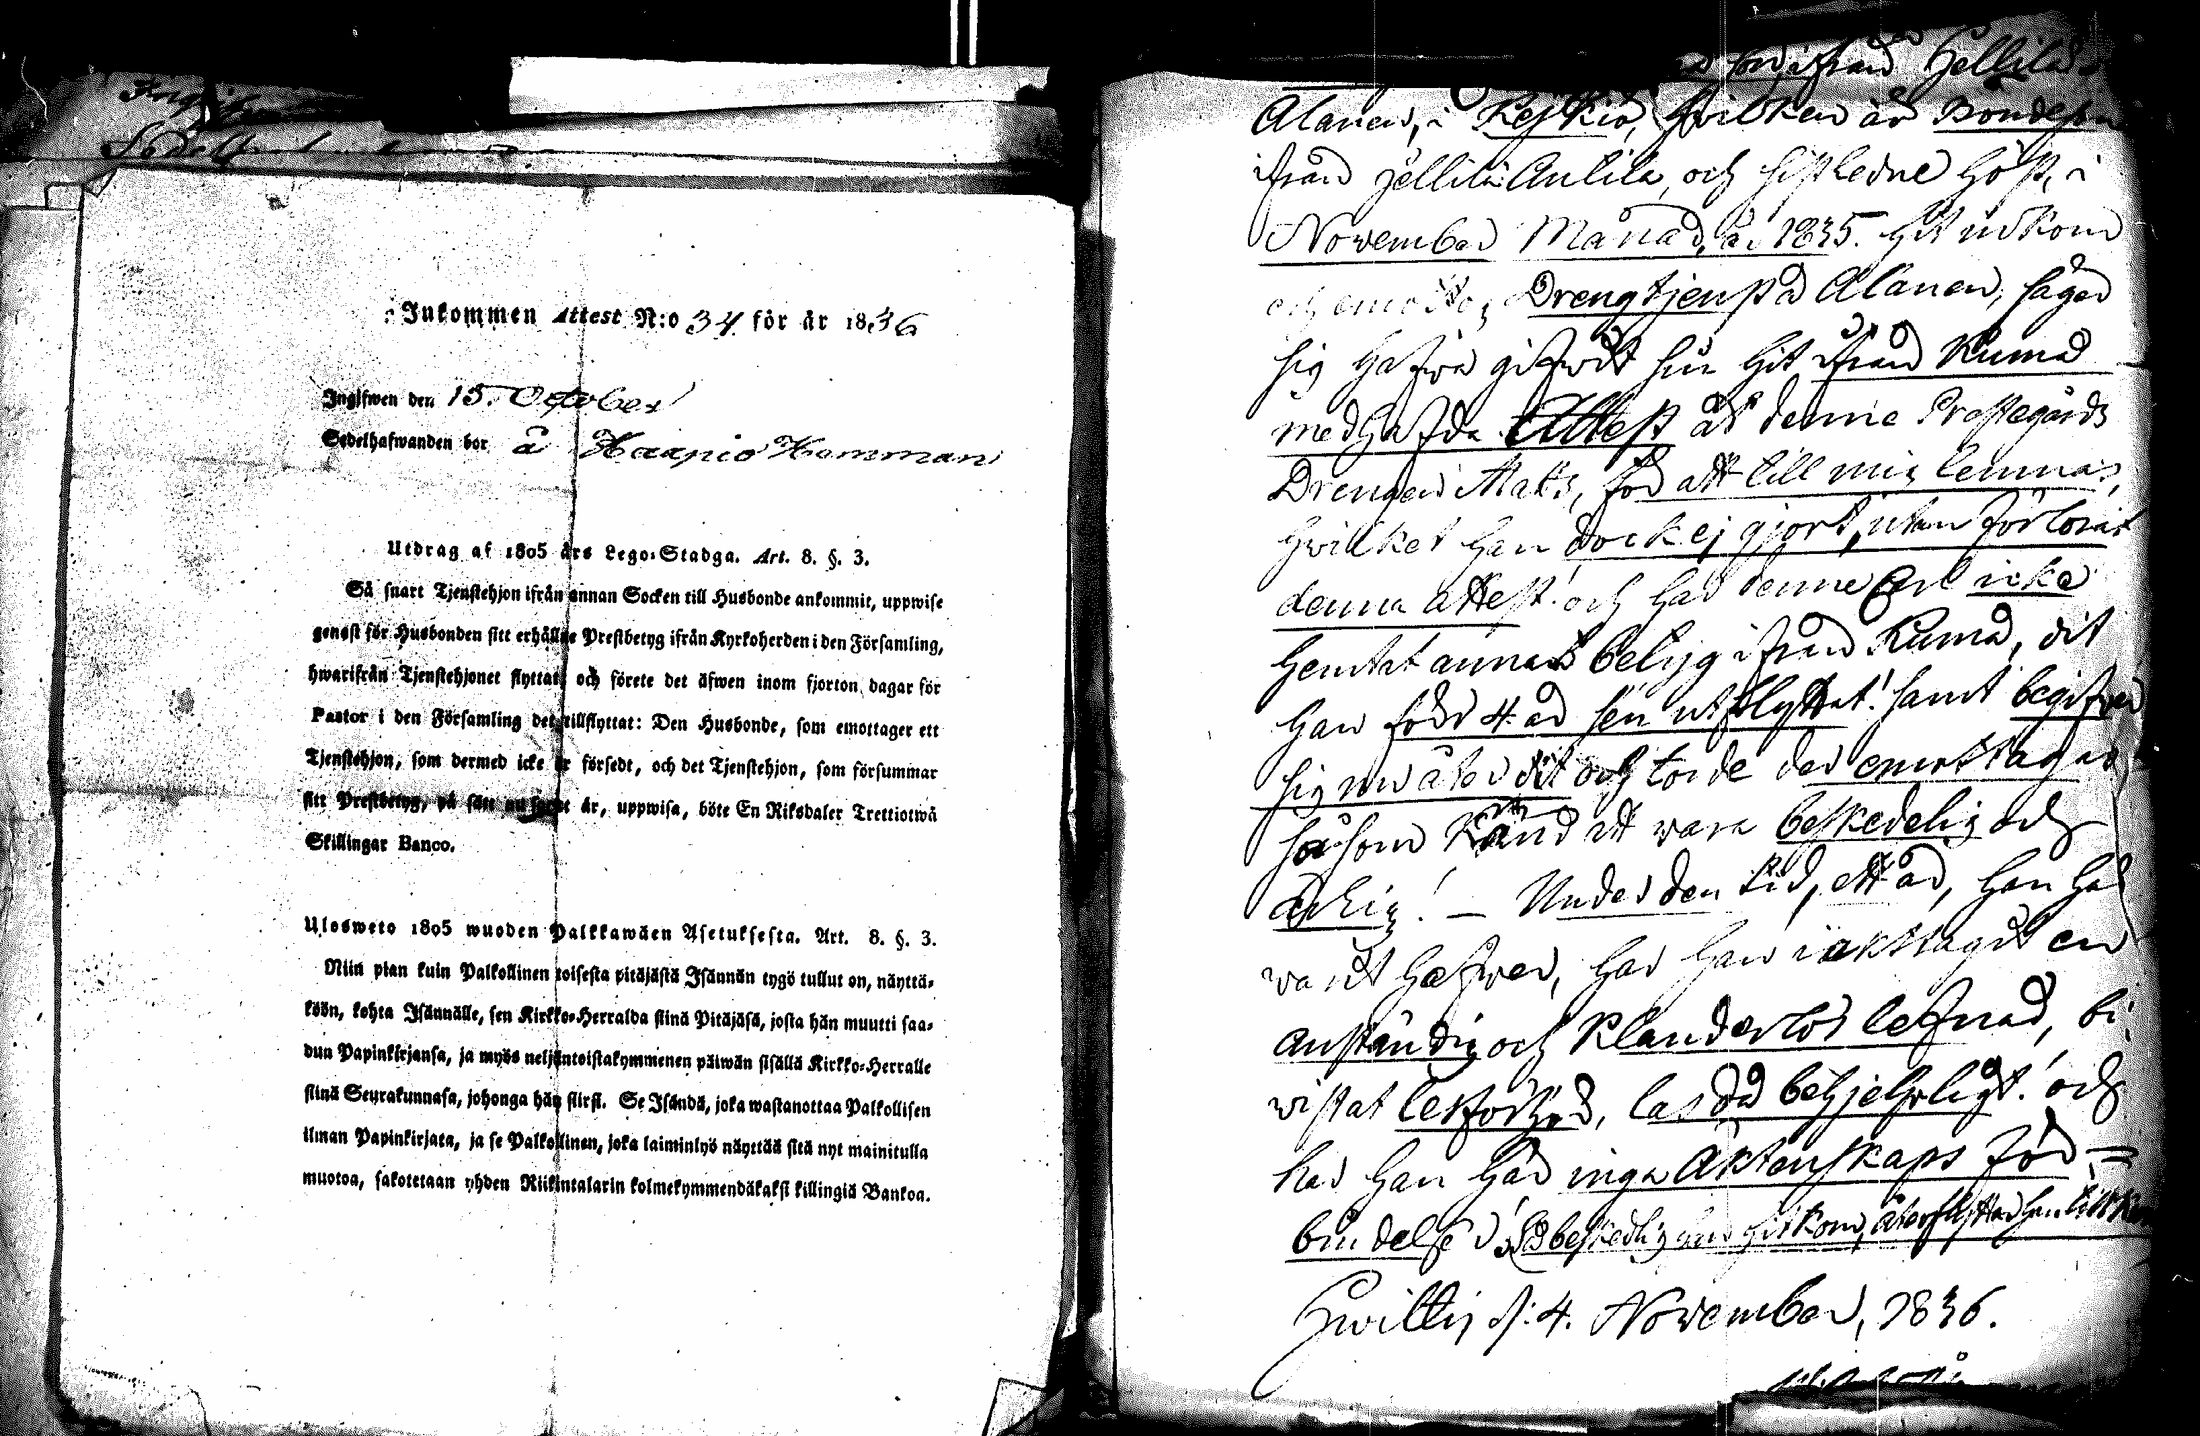 Inkommen Attest N:o 34 för år 1836
Ingifwen den 15. October
Sedelhafwanden bor å Haapio Hammani
Utdrag af 1805 års Lego-Stadga. Art. 8. §. 3.
Så snart Tjenstehjon ifrån annan Socken till Husbonde ankommit, uppwise
genast för Husbonden sitt erhållne Prestbetyg ifrån Kyrkoherden i den Församling,
hwarifrån Tjenstehjonet flyttat; och förete det äfwen inom fjorton dagar för
Pastor i den Församling det tillflyttat: Den Husbonde, som emottager ett
Tjenstehjon, som dermed icke är försedt, och det Tjenstehjon, som försummar
sitt Prestbetyg, på sätt nu sagdt är, uppwisa, böte En Riksdaler Trettiotwå
Skillingar Banco.
Ulosweto 1805 wuoden Palkkawäen Asetuksesta. Art. 8. §. 3.
Niin pian kuin Palkollinen toisesta pitäjästä Isännän tygö tullut on, näyttä-
köön, kohta Isännälle, sen Kirkko-Herralda siinä Pitäjäsä, josta hän muutti saa-
dun Papinkirjansa, ja myös neljäntoistakymmenen päiwän sisällä Kirkko-Herralle
siinä Seurakunnasa, johonga hän siirsi. Se Isändä, joka wastanottaa Palkollisen
ilman Papinkirjata, ja se Palkollinen, joka laiminlyö näyttää sitä nyt mainitulla
muotoa, sakotetaan yhden Riikintalarin kolmekymmendäkaksi killingiä Bankoa.
ifrån
Alanen, i Keikiö, hwilken är Bondeson
ifrån Anlila, och sistledne höst, i
November Månad, år 1835. hit utkom
och emottog Drengtjenst å Alanen, säger
sig hafwa gifwit sin hit ifrån Kumo
medhafda Attest åt denne Prostegårds
Drengen Mats, för att till mig lemnas,
hwilket han dock ej gjort, utan förlorat
denna attest! och har denne Carl icke
hemtat annat betyg ifrån Kumo, dit
han född 4 år sen utflyttat! samt begifwer
sig nu åter dit och torde der emottagas,
såsom känd att wara beskedelig och
ärlig! — Under den tid, ett år, han här
warit hafwer, har han iakttagit en
anständig och klanderlös lefnad, bi-
wistat läsförhör, läs då behjelpligt! och
har han här inga Äktenskaps för-
bindelser! Så beskedlig han hitkom, återflyttar han till
Hwittis d: 4. November, 1836.